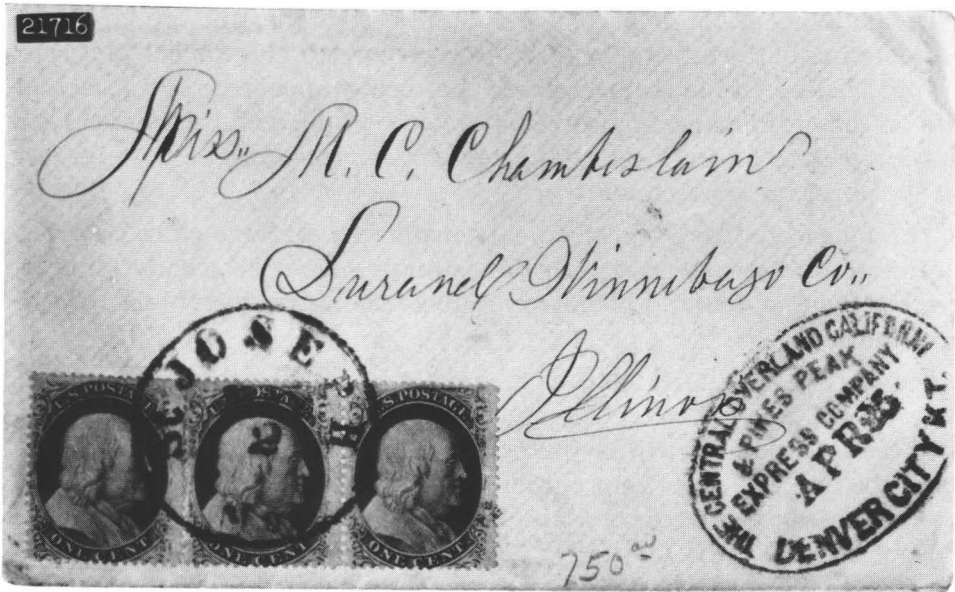 21716
Miss. M. C. Chamberlain
Durand Winnebago Co..
Illinois
ST JOSEPH
2
U.S. POSTAGE
U.S. POSTAGE
U.S. POSTAGE
ONE CENT
ONE CENT
ONE CENT
THE CENTRAL OVERLAND CALIFORNIA
& PIKES PEAK
EXPRESS COMPANY
APR 25
DENVER CITY K.T.
750 00